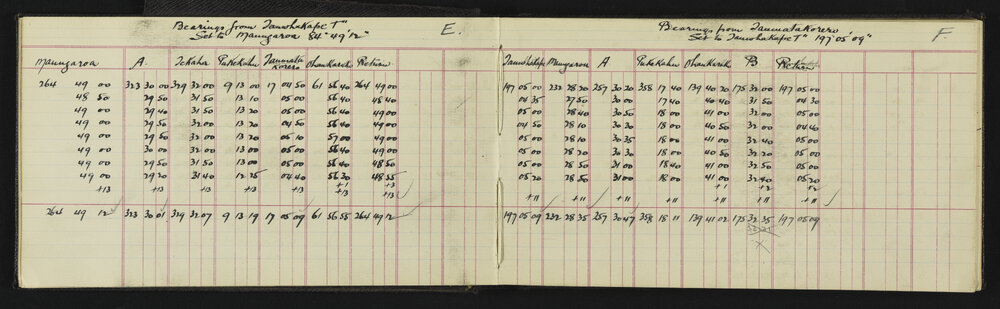 Bearings from Tauwhakapē T"
Set to Maungaroa 84° 49' 12"
E.
Maungaroa A. Tekaha Pukekahu Taumata Korero Ohaukarik Return
264 49 00 323 30 00 329 32 00 9 13 00 17 04 50 61 56 40 264 49 00
48 50 29 50 31 50 13 10 05 00 56 40 48 40
49 00 29 40 31 50 13 20 05 00 56 40 49 00
49 00 29 50 32 00 13 00 04 50 56 40 49 00
49 00 29 50 32 00 13 20 05 10 57 00 49 00
49 00 30 00 32 00 13 00 05 00 56 40 49 00
49 00 29 50 31 50 13 00 05 00 56 40 48 50
49 00 29 20 31 40 12 25 04 40 56 30 48 55
+13 +13 +13 +13 +13 +13 +13
264 49 12 323 30 01 329 32 07 9 13 19 17 05 09 61 56 55 264 49 12
Bearings from Taumatakorero
Set to Tauwhakape T" 197° 05' 09"
F.
Tauwhakape Maungaroa A Pukekahu Ohaukarik B Return
197 05 00 232 28 20 257 30 20 358 17 40 139 40 20 175 32 00 197 05 00
04 35 27 50 30 00 17 40 40 40 31 50 04 30
05 00 28 40 30 50 18 00 41 00 32 00 05 00
04 50 28 10 30 30 18 00 40 50 32 00 04 40
05 00 28 10 30 35 18 00 41 00 32 40 05 00
05 00 28 20 30 30 18 00 40 50 32 20 05 00
05 00 28 50 31 00 18 40 41 00 32 50 05 00
05 20 28 50 31 00 18 00 41 00 32 40 05 20
+11 +11 +11 +11 +11 +11 +11
197 05 09 232 28 35 257 30 47 358 18 11 139 41 02 175 32 35 197 05 09
X